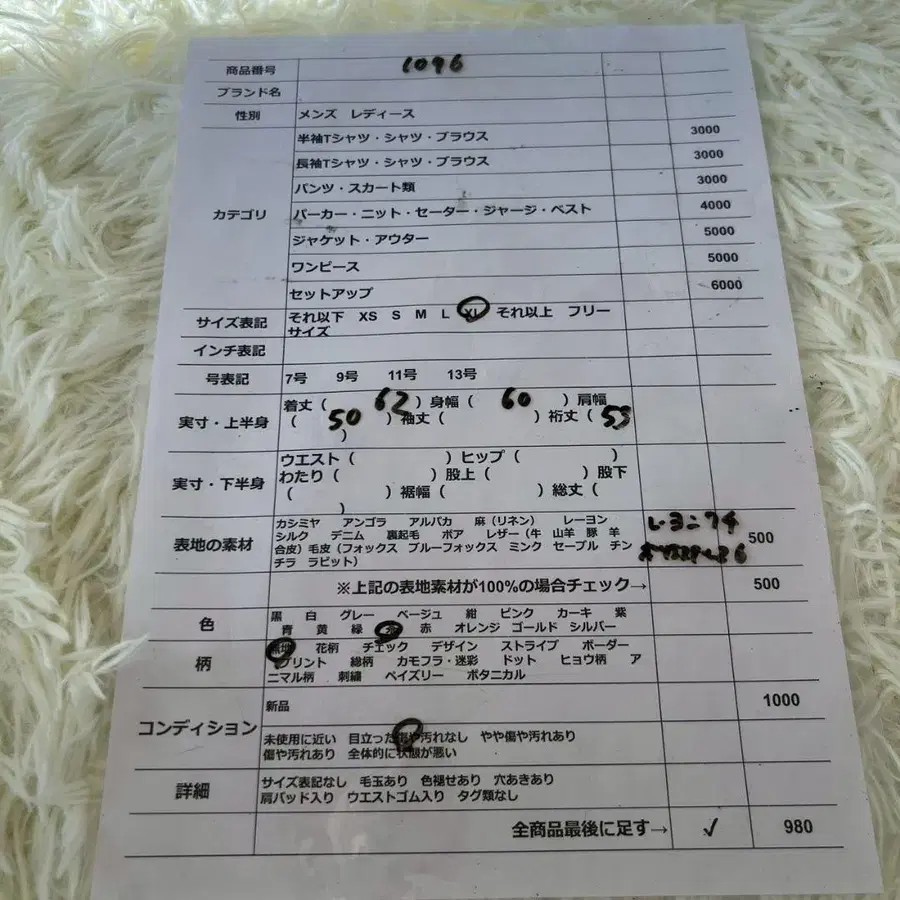 商品番号 1096
ブランド名
性別 メンズ レディース
カテゴリ
半袖Tシャツ・シャツ・ブラウス 3000
長袖Tシャツ・シャツ・ブラウス 3000
パンツ・スカート類 3000
パーカー・ニット・セーター・ジャージ・ベスト 4000
ジャケット・アウター 5000
ワンピース 5000
セットアップ 6000
サイズ表記 それ以下 XS S M L XL それ以上 フリー
サイズ
インチ表記
号表記 7号 9号 11号 13号
実寸・上半身
着丈（ 62 ）身幅（ 60 ）肩幅
（ 50 ）袖丈（ ）裄丈（ 53
）
実寸・下半身
ウエスト（ ）ヒップ（ ）
わたり（ ）股上（ ）股下
（ ）裾幅（ ）総丈（
）
表地の素材
カシミヤ アンゴラ アルパカ 麻（リネン） レーヨン
シルク デニム 裏起毛 ボア レザー（牛 山羊 豚 羊
合皮）毛皮（フォックス ブルーフォックス ミンク セーブル チン
チラ ラビット）
レーヨン74
26
500
※上記の表地素材が100%の場合チェック→ 500
色
黒 白 グレー ベージュ 紺 ピンク カーキ 紫
青 黄 緑 茶 赤 オレンジ ゴールド シルバー
柄
無地 花柄 チェック デザイン ストライプ ボーダー
プリント 総柄 カモフラ・迷彩 ドット ヒョウ柄 ア
ニマル柄 刺繍 ペイズリー ボタニカル
コンディション
新品 1000
未使用に近い 目立った傷や汚れなし やや傷や汚れあり
傷や汚れあり 全体的に状態が悪い
詳細
サイズ表記なし 毛玉あり 色褪せあり 穴あきあり
肩パッド入り ウエストゴム入り タグ類なし
全商品最後に足す→ ✓ 980